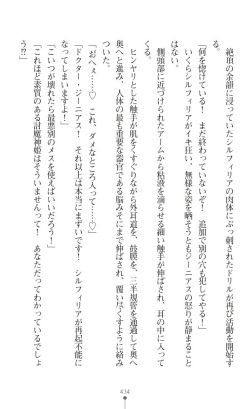 絶頂の余韻に浸っていたシルフィリアの肉体にぶっ刺されたドリルが再び活動を開始す
る。
「何を惚けている！　まだ終わっていないぞ！　追加で別の穴も犯してやる！」
　いくらシルフィリアがイキ狂い、無様な姿を晒そうともジーニアスの怒りが静まること
はない。
　側頭部に近づけられたアームから粘液を滴らせる細い触手が伸ばされ、耳の中に入って
くる。
　ヒンヤリとした触手が肌をくすぐりながら外耳道を、鼓膜を、三半規管を通過して奥へ
奥へと進み、人体の最も重要な器官である脳みそにまで伸ばされ、覆い尽くすように絡み
ついた。
「おへぇ……♡　これ、ダメなところ入って……♡」
「ドクター・ジーニアス！　それ以上は本当にまずいです！　シルフィリアが再起不能に
なってしまいますよ！」
「こいつが壊れたら最悪別のメスを使えばいいだろう！」
「これほど素質のある討魔神姫はそういませんって！　あなただってわかっているでしょ
う!?」
434